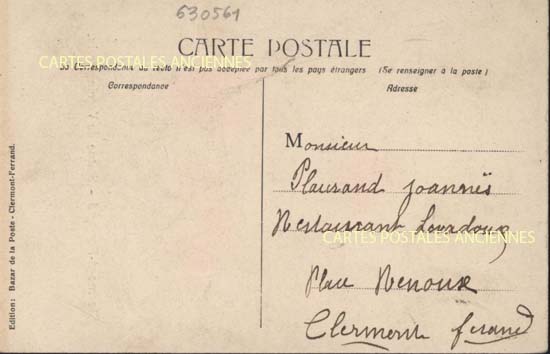 630561
CARTE POSTALE
CARTES POSTALES ANCIENNES
La Correspondance au recto n'est pas acceptée par tous les pays étrangers (Se renseigner à la poste)
Correspondance
Adresse
Monsieur
Plaurand Joannès
Restaurant
CARTES POSTALES ANCIENNES
Place Renoux
Clermont ferand
Edition: Bazar de la Poste - Clermont-Ferrand.